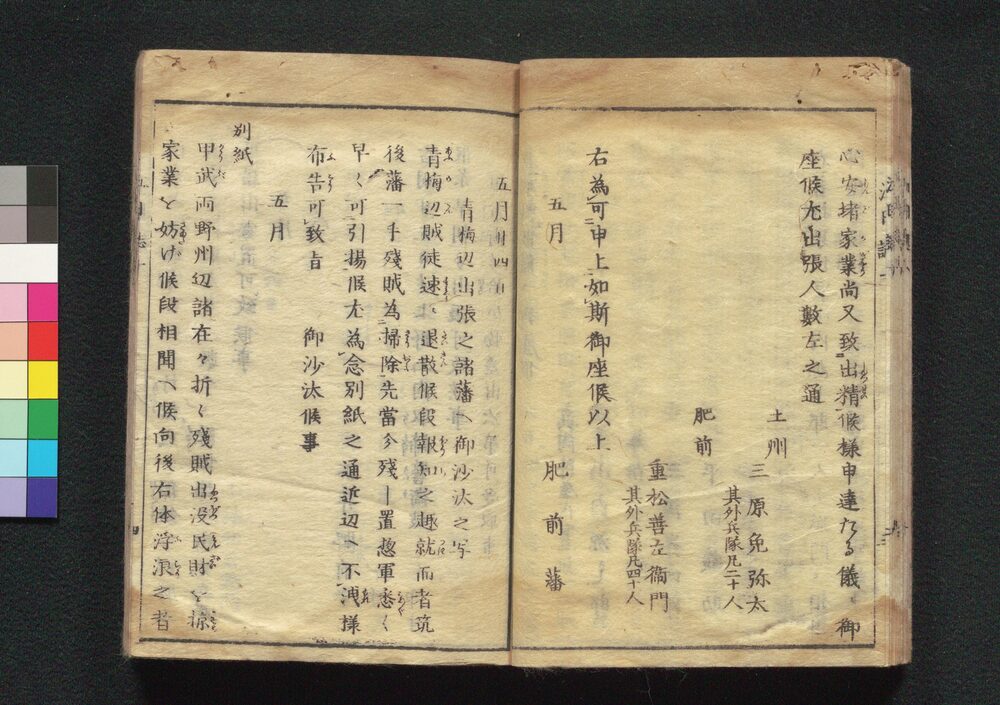 心安堵家業尚又致出精候様申達たる儀ニ御
座候尤出張人数左之通
土州
三原兔弥太
其外兵隊凡二十人
肥前
重松善左衞門
其外兵隊凡四十人
右為可申上如斯御座候以上
五月
肥前藩
五月廿四日
青梅辺出張之諸藩ヘ御沙汰之写
青梅辺賊徒速ニ退散候段報知之趣就而者筑
後藩一手残賊為掃除先當分残シ置惣軍悉く
早く可引揚候尤為念別紙之通近辺ヘ不洩様
布告可致旨 御沙汰候事
五月
別紙
甲武両野州辺諸在々折く残賊出没民財を掠
家業を妨け候段相聞ヘ候向後右体浮浪之者